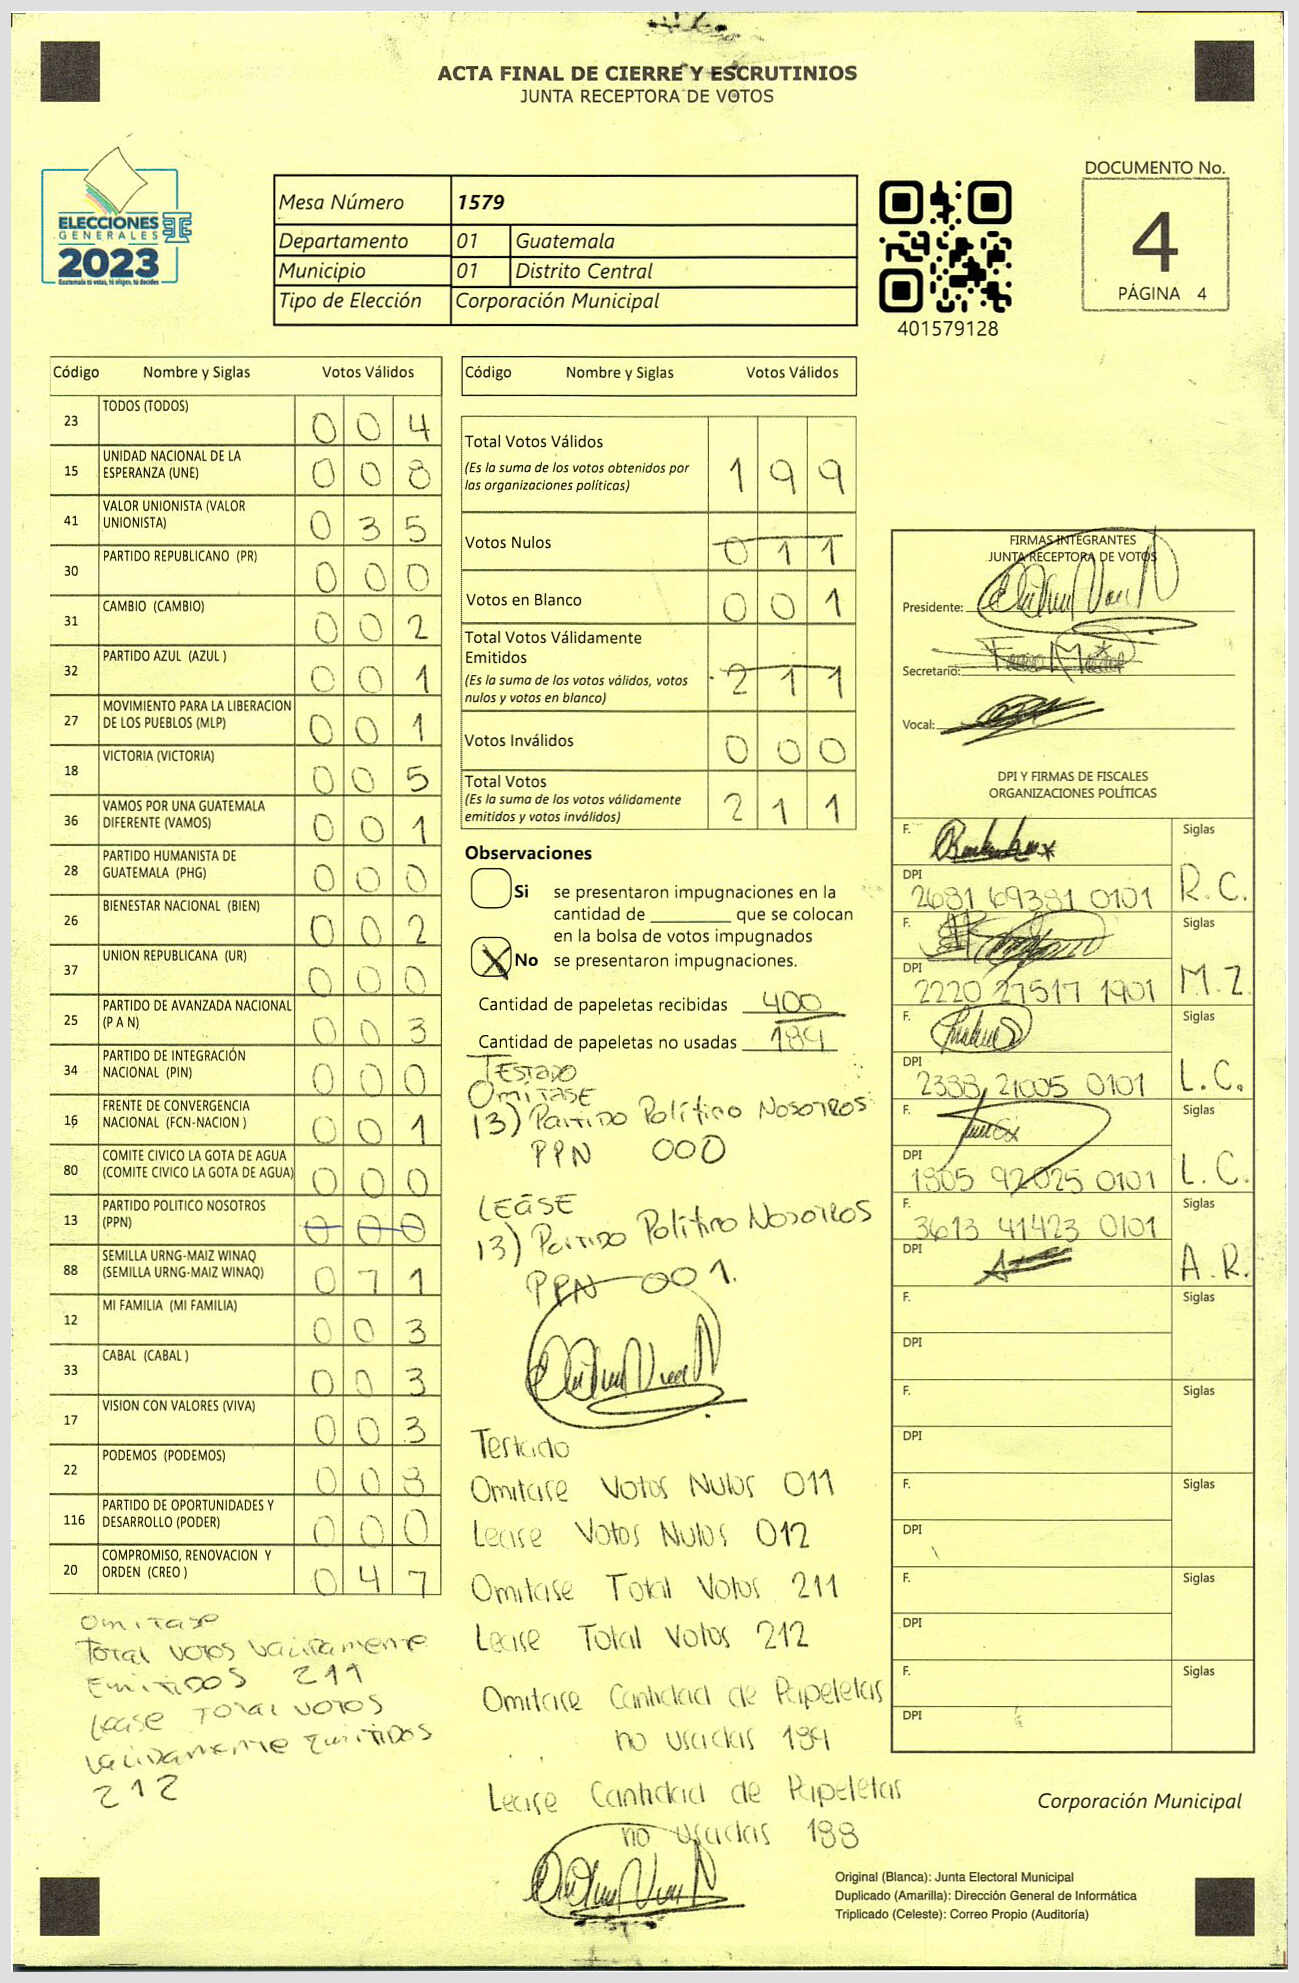 ACTA FINAL DE CIERRE Y ESCRUTINIOS
JUNTA RECEPTORA DE VOTOS
ELECCIONES
GENERALES
2023
Guatemala tú votas, tú eliges, tú decides
Mesa Número 1579
Departamento 01 Guatemala
Municipio 01 Distrito Central
Tipo de Elección Corporación Municipal
401579128
DOCUMENTO No.
4
PÁGINA 4
Código Nombre y Siglas Votos Válidos
23 TODOS (TODOS) 0 0 4
15 UNIDAD NACIONAL DE LA
ESPERANZA (UNE) 0 0 8
41 VALOR UNIONISTA (VALOR
UNIONISTA) 0 3 5
30 PARTIDO REPUBLICANO (PR) 0 0 0
31 CAMBIO (CAMBIO) 0 0 2
32 PARTIDO AZUL (AZUL ) 0 0 1
27 MOVIMIENTO PARA LA LIBERACION
DE LOS PUEBLOS (MLP) 0 0 1
18 VICTORIA (VICTORIA) 0 0 5
36 VAMOS POR UNA GUATEMALA
DIFERENTE (VAMOS) 0 0 1
28 PARTIDO HUMANISTA DE
GUATEMALA (PHG) 0 0 0
26 BIENESTAR NACIONAL (BIEN) 0 0 2
37 UNION REPUBLICANA (UR) 0 0 0
25 PARTIDO DE AVANZADA NACIONAL
(P A N) 0 0 3
34 PARTIDO DE INTEGRACIÓN
NACIONAL (PIN) 0 0 0
16 FRENTE DE CONVERGENCIA
NACIONAL (FCN-NACION ) 0 0 1
80 COMITE CIVICO LA GOTA DE AGUA
(COMITE CIVICO LA GOTA DE AGUA) 0 0 0
13 PARTIDO POLITICO NOSOTROS
(PPN) 0 0 0
88 SEMILLA URNG-MAIZ WINAQ
(SEMILLA URNG-MAIZ WINAQ) 0 7 1
12 MI FAMILIA (MI FAMILIA) 0 0 3
33 CABAL (CABAL ) 0 0 3
17 VISION CON VALORES (VIVA) 0 0 3
22 PODEMOS (PODEMOS) 0 0 8
116 PARTIDO DE OPORTUNIDADES Y
DESARROLLO (PODER) 0 0 0
20 COMPROMISO, RENOVACION Y
ORDEN (CREO ) 0 4 7
Omitase
Total votos validamente
Emitidos 211
Lease Total votos
validamente Emitidos
212
Código Nombre y Siglas Votos Válidos
Total Votos Válidos
(Es la suma de los votos obtenidos por
las organizaciones políticas) 1 9 9
Votos Nulos 0 1 1
Votos en Blanco 0 0 1
Total Votos Válidamente
Emitidos
(Es la suma de los votos válidos, votos
nulos y votos en blanco) 2 1 1
Votos Inválidos 0 0 0
Total Votos
(Es la suma de los votos válidamente
emitidos y votos inválidos) 2 1 1
Observaciones
Si se presentaron impugnaciones en la
cantidad de ________ que se colocan
en la bolsa de votos impugnados
X No se presentaron impugnaciones.
Cantidad de papeletas recibidas 400
Cantidad de papeletas no usadas 189
Testado
Omitase
13) Partido Político Nosotros
PPN 000
LEASE
13) Partido Político Nosotros
PPN 001.
Testado
Omitase Votos Nulos 011
Lease Votos Nulos 012
Omitase Total Votos 211
Lease Total Votos 212
Omitase Cantidad de Papeletas
no usadas 189
Lease Cantidad de Papeletas
no usadas 188
FIRMAS INTEGRANTES
JUNTA RECEPTORA DE VOTOS
Presidente:
Secretario:
Vocal:
DPI Y FIRMAS DE FISCALES
ORGANIZACIONES POLÍTICAS
F. Siglas
DPI 2681 69381 0101 R.C.
F. Siglas
DPI 2220 27517 1901 M.Z
F. Siglas
DPI 2338 21005 0101 L.C.
F. Siglas
DPI 1805 92025 0101 L.C.
F. 3613 41423 0101 Siglas
DPI A.R.
F. Siglas
DPI
F. Siglas
DPI
F. Siglas
DPI
F. Siglas
DPI
F. Siglas
DPI
Corporación Municipal
Original (Blanca): Junta Electoral Municipal
Duplicado (Amarilla): Dirección General de Informática
Triplicado (Celeste): Correo Propio (Auditoría)